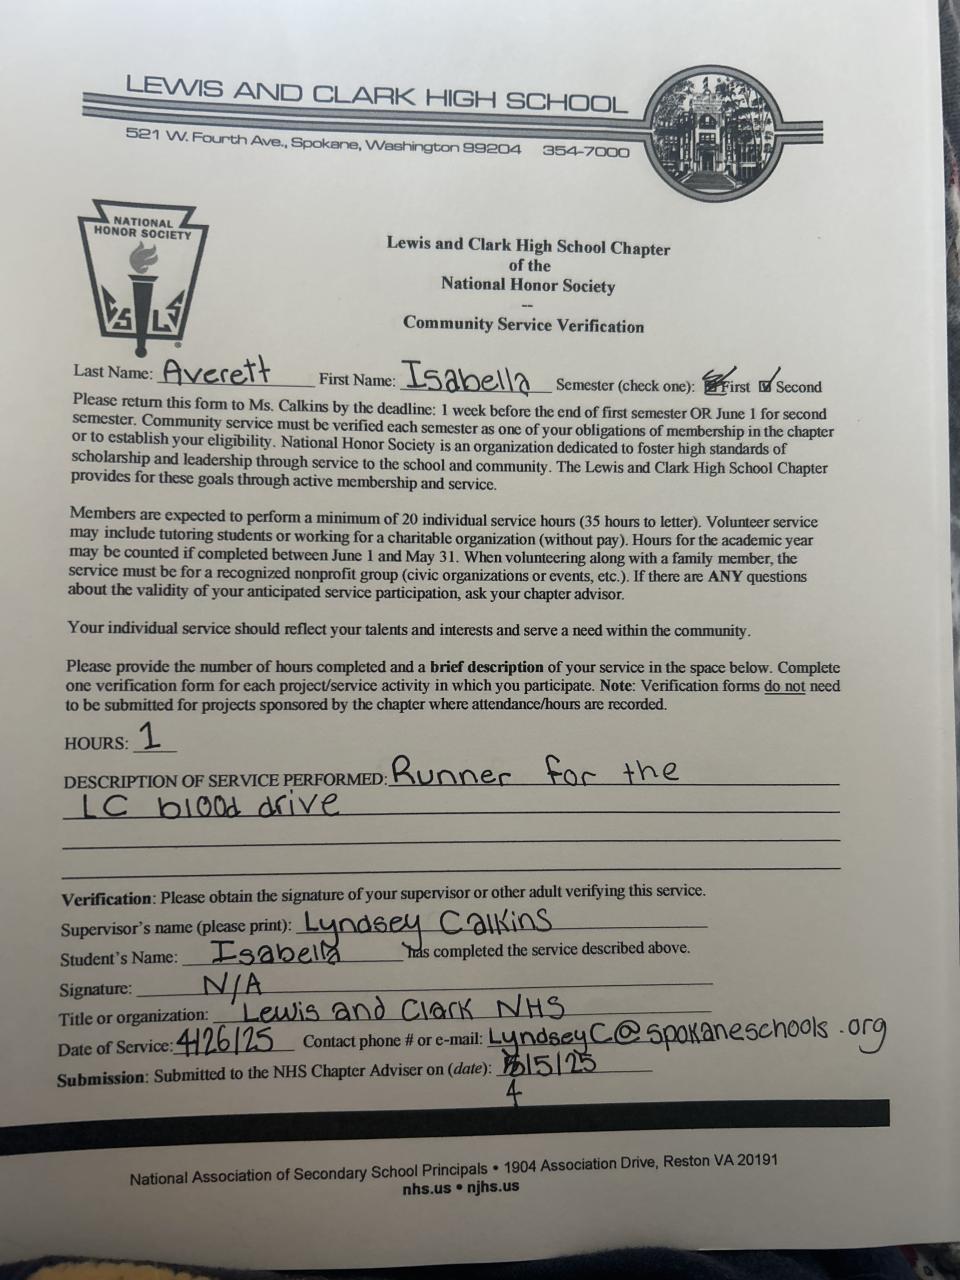 LEWIS AND CLARK HIGH SCHOOL
521 W. Fourth Ave., Spokane, Washington 99204 354-7000
NATIONAL
HONOR SOCIETY
Lewis and Clark High School Chapter
of the
National Honor Society
--
Community Service Verification
Last Name: Averett First Name: Isabella Semester (check one): First Second
Please return this form to Ms. Calkins by the deadline: 1 week before the end of first semester OR June 1 for second
semester. Community service must be verified each semester as one of your obligations of membership in the chapter
or to establish your eligibility. National Honor Society is an organization dedicated to foster high standards of
scholarship and leadership through service to the school and community. The Lewis and Clark High School Chapter
provides for these goals through active membership and service.
Members are expected to perform a minimum of 20 individual service hours (35 hours to letter). Volunteer service
may include tutoring students or working for a charitable organization (without pay). Hours for the academic year
may be counted if completed between June 1 and May 31. When volunteering along with a family member, the
service must be for a recognized nonprofit group (civic organizations or events, etc.). If there are ANY questions
about the validity of your anticipated service participation, ask your chapter advisor.
Your individual service should reflect your talents and interests and serve a need within the community.
Please provide the number of hours completed and a brief description of your service in the space below. Complete
one verification form for each project/service activity in which you participate. Note: Verification forms do not need
to be submitted for projects sponsored by the chapter where attendance/hours are recorded.
HOURS: 1
DESCRIPTION OF SERVICE PERFORMED: Runner for the
LC blood drive
Verification: Please obtain the signature of your supervisor or other adult verifying this service.
Supervisor's name (please print): Lyndsey Calkins
Student's Name: Isabella has completed the service described above.
Signature: N/A
Title or organization: Lewis and Clark NHS
Date of Service: 4/26/25 Contact phone # or e-mail: LyndseyC@spokaneschools.org
Submission: Submitted to the NHS Chapter Adviser on (date): /5/25
4
National Association of Secondary School Principals • 1904 Association Drive, Reston VA 20191
nhs.us • njhs.us